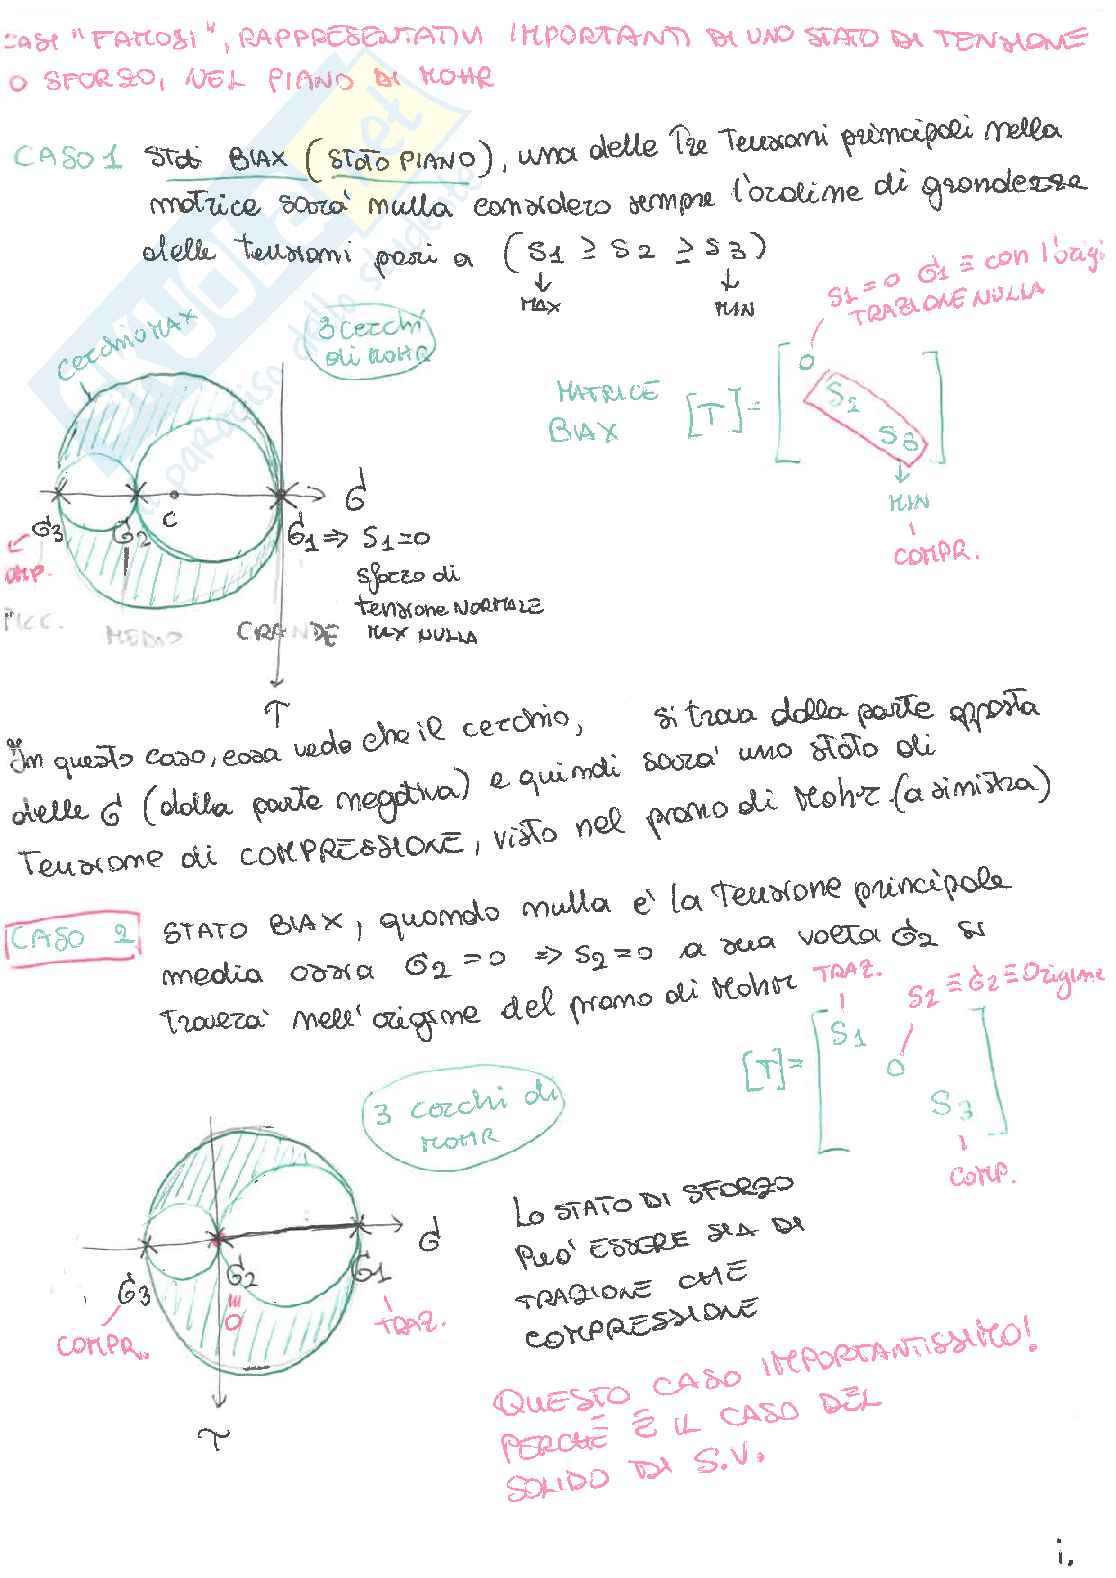 CASI "FAMOSI", RAPPRESENTATIVI IMPORTANTI DI UNO STATO DI TENSIONE
O SFORZO, NEL PIANO DI MOHR
CASO 1 Stati BIAX (STATO PIANO), una delle Tre Tensioni principali nella
matrice sarà nulla considero sempre l'ordine di grandezza
delle tensioni pari a (S1 ≥ S2 ≥ S3)
MAX MIN
S1=0 σ1 ≡ con l'origi
TRAZIONE NULLA
cerchio MAX
3 cerchi
di MOHR
MATRICE
BIAX
[T]=
0
S2
S3
MIN
COMPR.
σ
σ3 σ2 C σ1 ⇒ S1=0
OMP.
sforzo di
tensione NORMALE
MAX NULLA
PICC. MEDIO GRANDE
τ
In questo caso, cosa vedo che il cerchio, si trova dalla parte opposta
delle σ (dalla parte negativa) e quindi sarà uno stato di
Tensione di COMPRESSIONE, visto nel piano di Mohr (a sinistra)
CASO 2 STATO BIAX, quando nulla è la Tensione principale
media ossia σ2=0 ⇒ S2=0 a sua volta σ2 si
troverà nell'origine del piano di Mohr
TRAZ.
S2 ≡ σ2 ≡ Origine
[T]=
S1
0
S3
COMP.
3 cerchi di
MOHR
σ
σ3 σ2 σ1
0
COMPR.
TRAZ.
τ
LO STATO DI SFORZO
PUO' ESSERE SIA DI
TRAZIONE CHE
COMPRESSIONE
QUESTO CASO IMPORTANTISSIMO!
PERCHÉ È IL CASO DEL
SOLIDO DI S.V.
i.